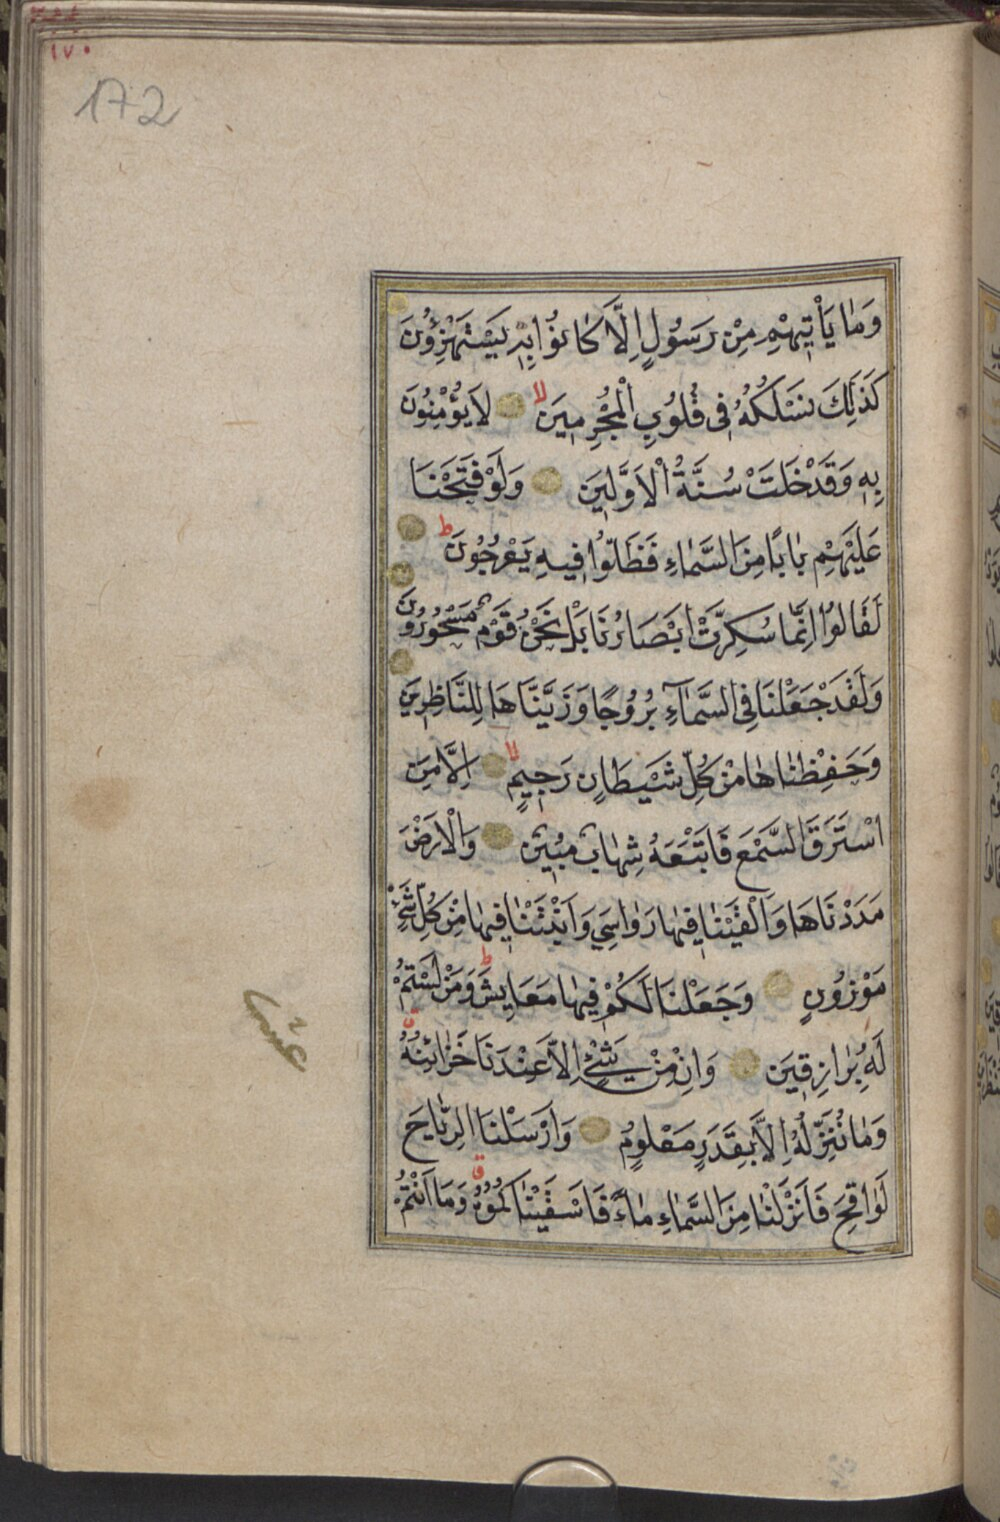 ١٧٠
172
وَمَا يَأْتِيهِمْ مِنْ رَسُولٍ اِلَّا كَانُوا بِهِ يَسْتَهْزِؤُنَ
كَذٰلِكَ نَسْلُكُهُ فِى قُلُوبِ الْمُجْرِمِينَ لا لَا يُؤْمِنُونَ
بِهِ وَقَدْ خَلَتْ سُنَّةُ الْاَوَّلِينَ وَلَوْ فَتَحْنَا
عَلَيْهِمْ بَابًا مِنَ السَّمَاءِ فَظَلُّوا فِيهِ يَعْرُجُونَ ط
لَقَالُوا اِنَّمَا سُكِّرَتْ اَبْصَارُنَا بَلْ نَحْنُ قَوْمٌ مَسْحُورُونَ
وَلَقَدْ جَعَلْنَا فِى السَّمَآءِ بُرُوجًا وَزَيَّنَّاهَا لِلنَّاظِرِينَ
وَحَفِظْنَاهَا مِنْ كُلِّ شَيْطَانٍ رَجِيمٍ لا اِلَّا مَنِ
اسْتَرَقَ السَّمْعَ فَاَتْبَعَهُ شِهَابٌ مُبِينٌ وَالْاَرْضَ
مَدَدْنَاهَا وَاَلْقَيْنَا فِيهَا رَوَاسِيَ وَاَنْبَتْنَا فِيهَا مِنْ كُلِّ شَيْءٍ
مَوْزُونٍ وَجَعَلْنَا لَكُمْ فِيهَا مَعَايِشَ ط وَمَنْ لَسْتُمْ
لَهُ بِرَازِقِينَ وَاِنْ مِنْ شَيْءٍ اِلَّا عِنْدَنَا خَزَائِنُهُ
وَمَا نُنَزِّلُهُ اِلَّا بِقَدَرٍ مَعْلُومٍ وَاَرْسَلْنَا الرِّيَاحَ
لَوَاقِحَ فَاَنْزَلْنَا مِنَ السَّمَاءِ مَاءً فَاَسْقَيْنَاكُمُوهُ وَمَا اَنْتُمْ
عشر